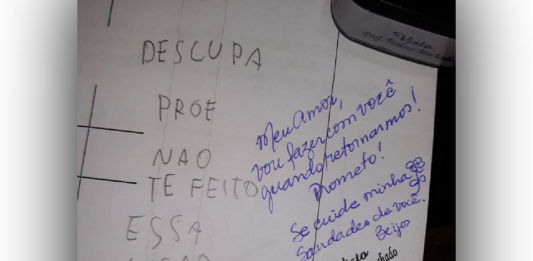 DESCUPA
PROE
NAO
TE FEITO
ESSA
Meu amor,
vou fazer com você
quando retornarmos!
Prometo!
Se cuide minha
Saudades de você.
Beijos
Visto